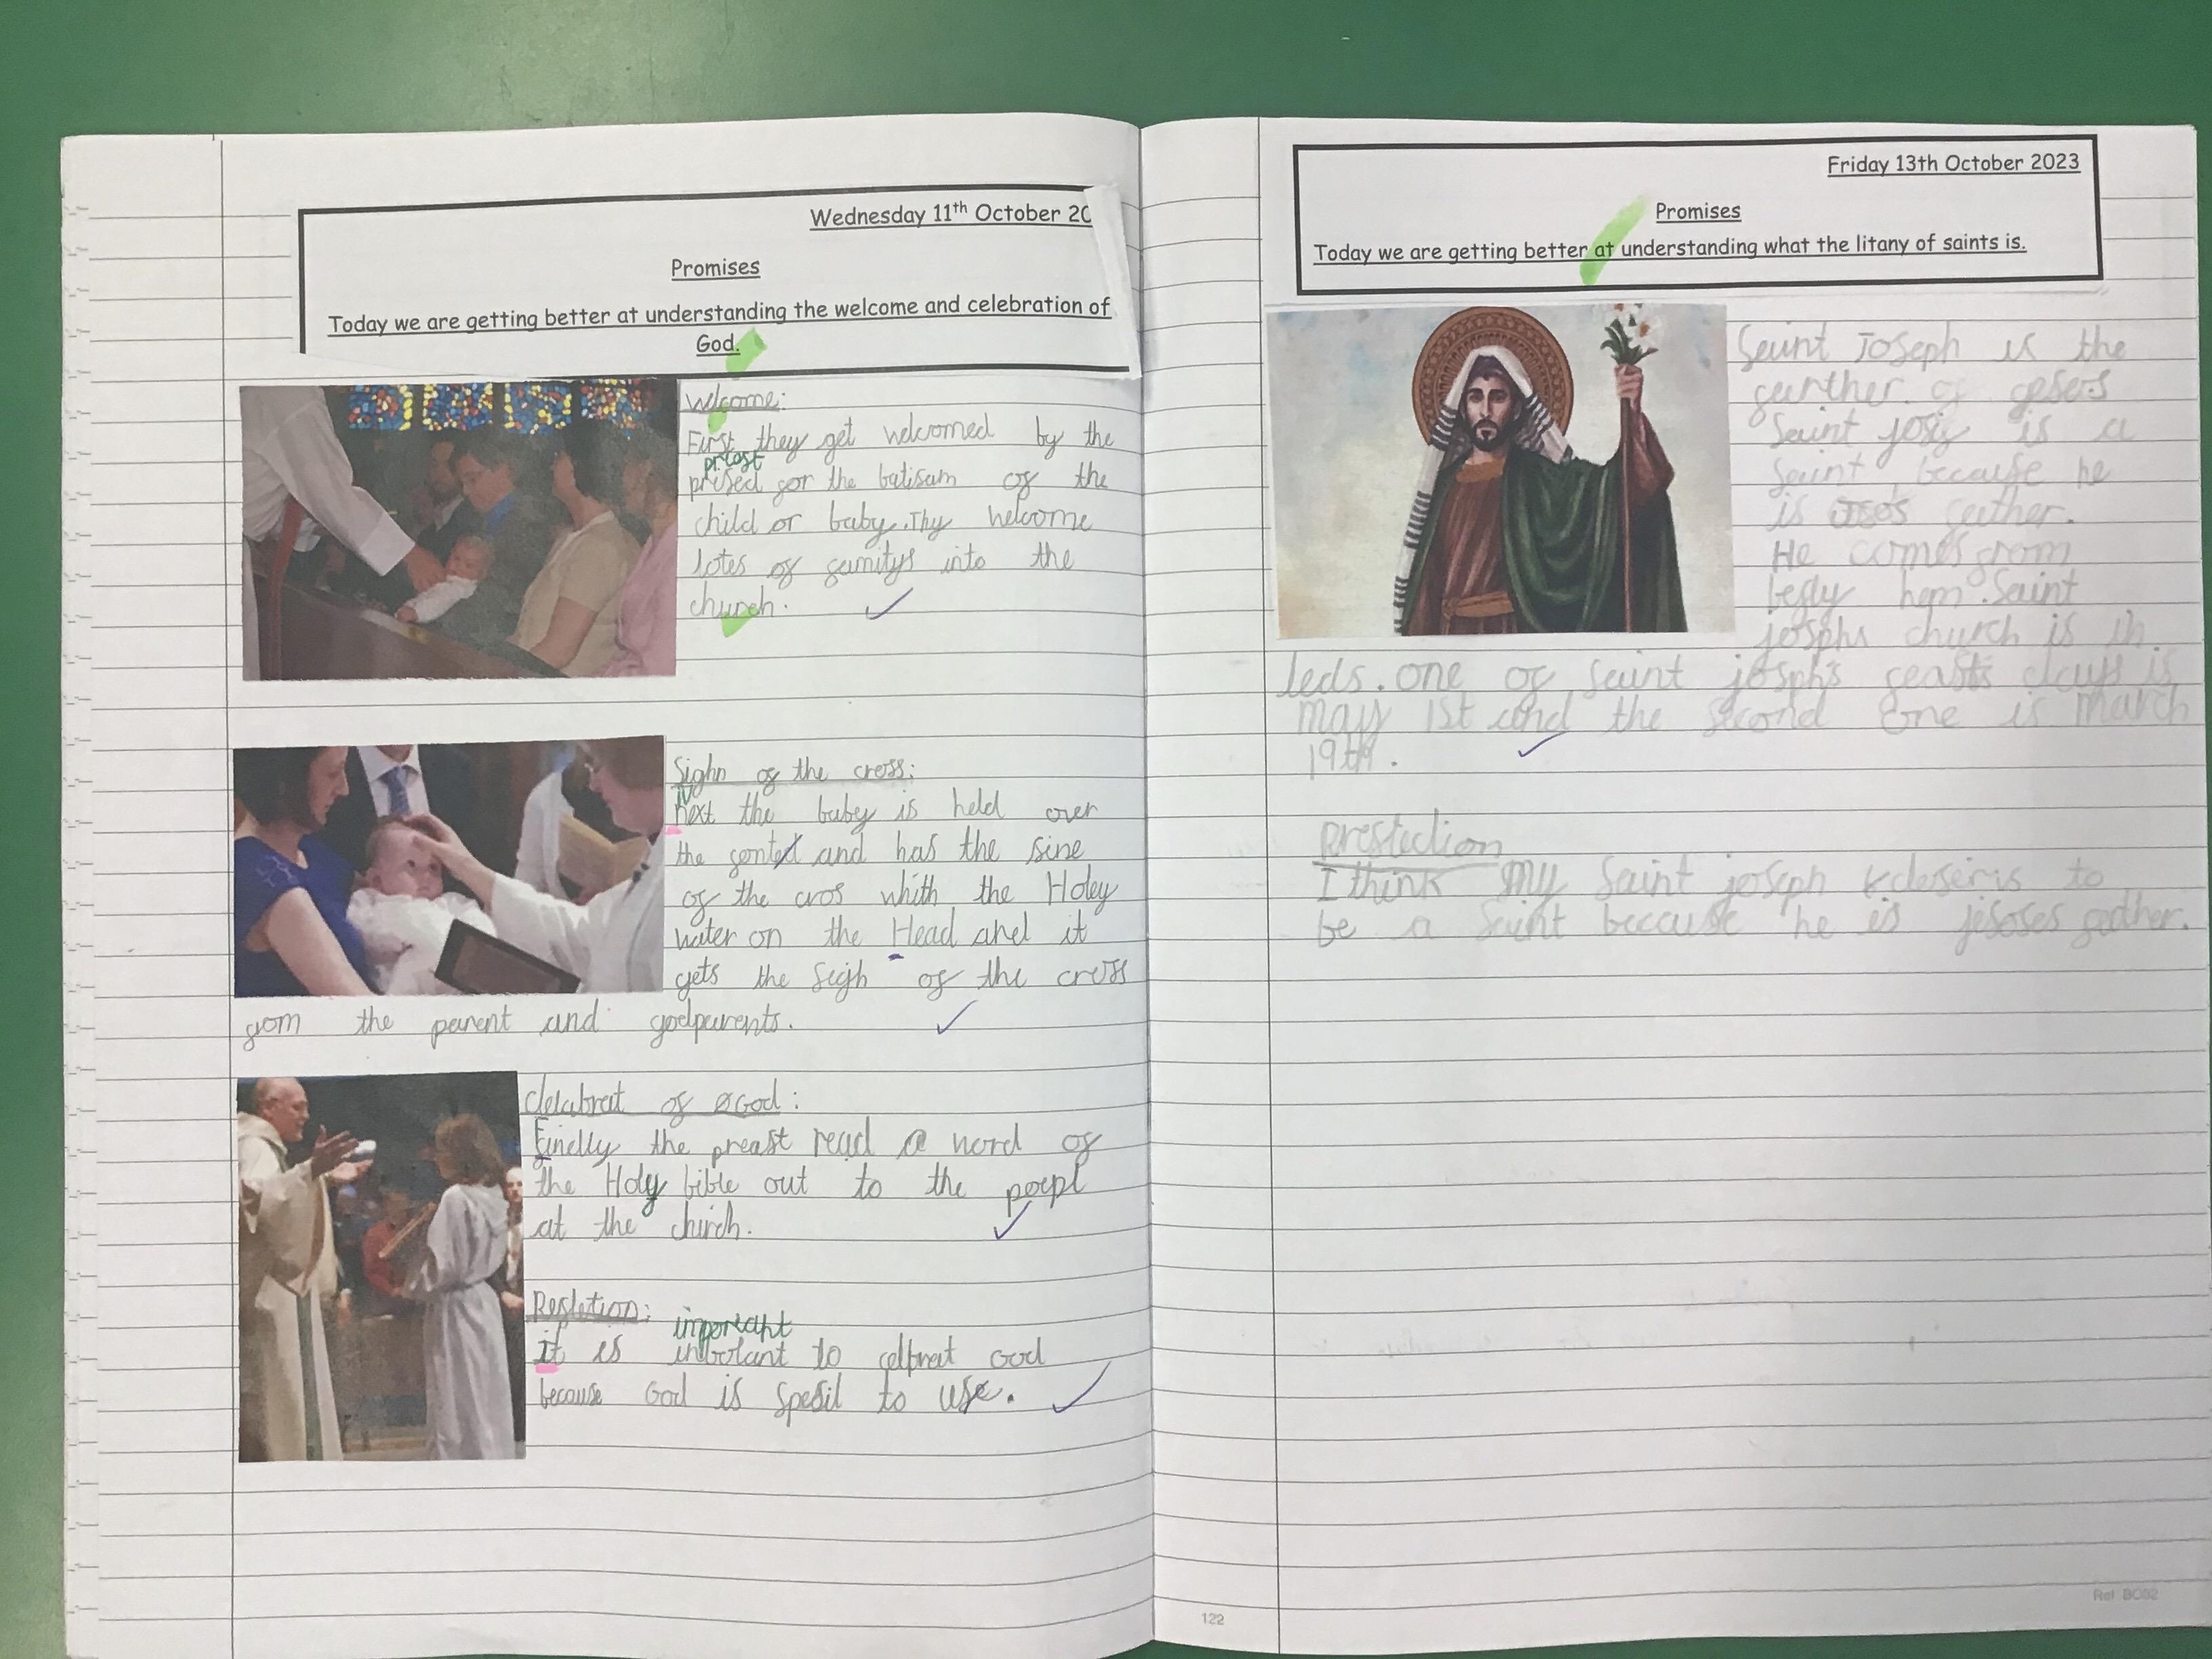 Wednesday 11th October 20
Promises
Today we are getting better at understanding the welcome and celebration of
God.
Welcome:
First they get welcomed by the
prest
presed for the batisam of the
child or baby. Thy welcome
lotes of familys into the
church.
Sighn of the cross:
Next the baby is held over
the font and has the sine
of the cros whith the Holey
water on the Head and it
gets the sigh of the cross
fom the parent and godparents.
Celabrat of God:
Finelly the preast read a word of
the Holy bible out to the poepl
at the church.
Resletion:
important
it is inbotant to celbrat God
because God is spesil to use.
Friday 13th October 2023
Promises
Today we are getting better at understanding what the litany of saints is.
Saint Joseph is the
farther of gesers
Saint josif is a
Saint because he
is father.
He comes from
begly hem. Saint
josphs church is in
leds. one of saint joseph's feasts days is
may 1st and the second one is march
19th.
Prestection
I think my Saint joseph deseris to
be a saint because he is jesoses father.
122
Ref BO02